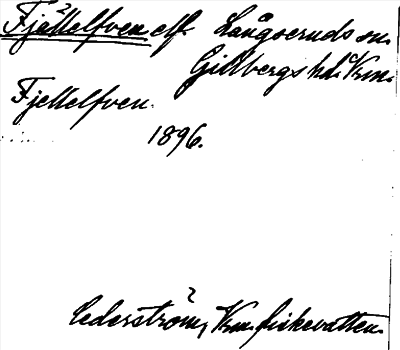 Fjällelfven elf. Långseruds sn.
Gillbergs hd. Krm.
Fjellelfven.
1896.
Cederström, Vrm. fiskevatten.